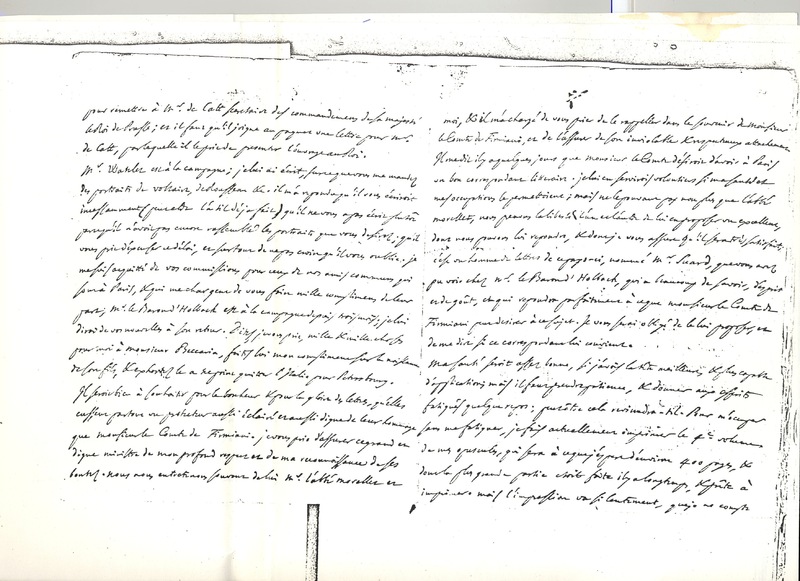 pour remettre à Mr. de Catt secretaire des commandemens de sa majesté
le Roi de Prusse; et il faut qu'il joigne au paquet une lettre pour Mr.
de Catt, par laquelle il le prie de presenter l'ouvrage au Roi.
Mr. Watelet est à la campagne; je lui ai écrit sur ce que vous me mandez
des portraits de Voltaire, de Rousseau &c. il m'a repondu qu'il vous écriroit
incessamment (peut-être l'a t'il deja fait) qu'il ne vous a pas écrit plutôt
parcequ'il n'avoit pas encore rassemblé les portraits que vous desirez, qu'il
vous prie d'excuser ce délai, et surtout de ne pas croire qu'il vous oublie. je
me suis acquitté de vos commissions pour ceux de nos amis communs qui
sont à Paris, & qui me chargent de vous faire mille complimens de leur
part. Mr. le Baron d'Holbach est à la campagne depuis trois mois; je lui
dirai de vos nouvelles à son retour. Dites, je vous prie, mille & mille choses
pour moi à monsieur Beccaria, faites lui mon compliment sur la naissance
de son fils, & exhortez le à ne point quitter l'Italie pour Petersbourg.
Il seroit bien à souhaiter pour le bonheur & pour la gloire des lettres, qu'elles
eussent partout un protecteur aussi éclairé et aussi digne de leur hommage
que monsieur le Comte de Firmian. je vous prie d'assurer ce grand et
digne ministre de mon profond respect et de ma reconnoissance de ses
bontés. nous nous entretenons souvent de lui Mr. l'abbé Morellet et
moi, & il m'a chargé de vous prier de le rappeller dans le souvenir de Monsieur
le Comte de Firmian, et de l'assurer de son inviolable & respectueux attachement.
Il me dit il y a quelques jours que monsieur le Comte desiroit d'avoir à Paris
un bon correspondant literaire. je lui en servirois volontiers si ma santé et
mes occupations le permettoient; mais ne le pouvant pas non plus que l'abbé
Morellet, nous prenons la liberté l'un et l'autre de lui en proposer un excellent,
dont nous pouvons lui repondre, & dont je vous assure qu'il sera très satisfait;
c'est un homme de lettres de ce pays ci, nommé Mr. Suard, que vous avez
pu voir chez Mr. le Baron d'Holbach, qui a beaucoup de savoir, d'esprit
et de goût, et qui repondra parfaitement à ce que monsieur le Comte de
Firmian peut desirer à ce sujet. Je vous serai obligé de le lui proposer, et
de me dire si ce correspondant lui convient.
Ma santé seroit assez bonne, si j'avois la tête meilleure, & plus capable
d'application; mais il faut prendre patience, & donner aux esprits
fatigués quelque repos; peut être cela reviendra-t-il. Pour m'occuper
sans me fatiguer, je fais actuellement imprimer le 4me volume
de mes opuscules, qui sera à ce que je crois d'environ 400 pages, &
dont la plus grande partie étoit faite il y a longtemps, & prête à
imprimer. mais l'impression va si lentement, que je ne compte